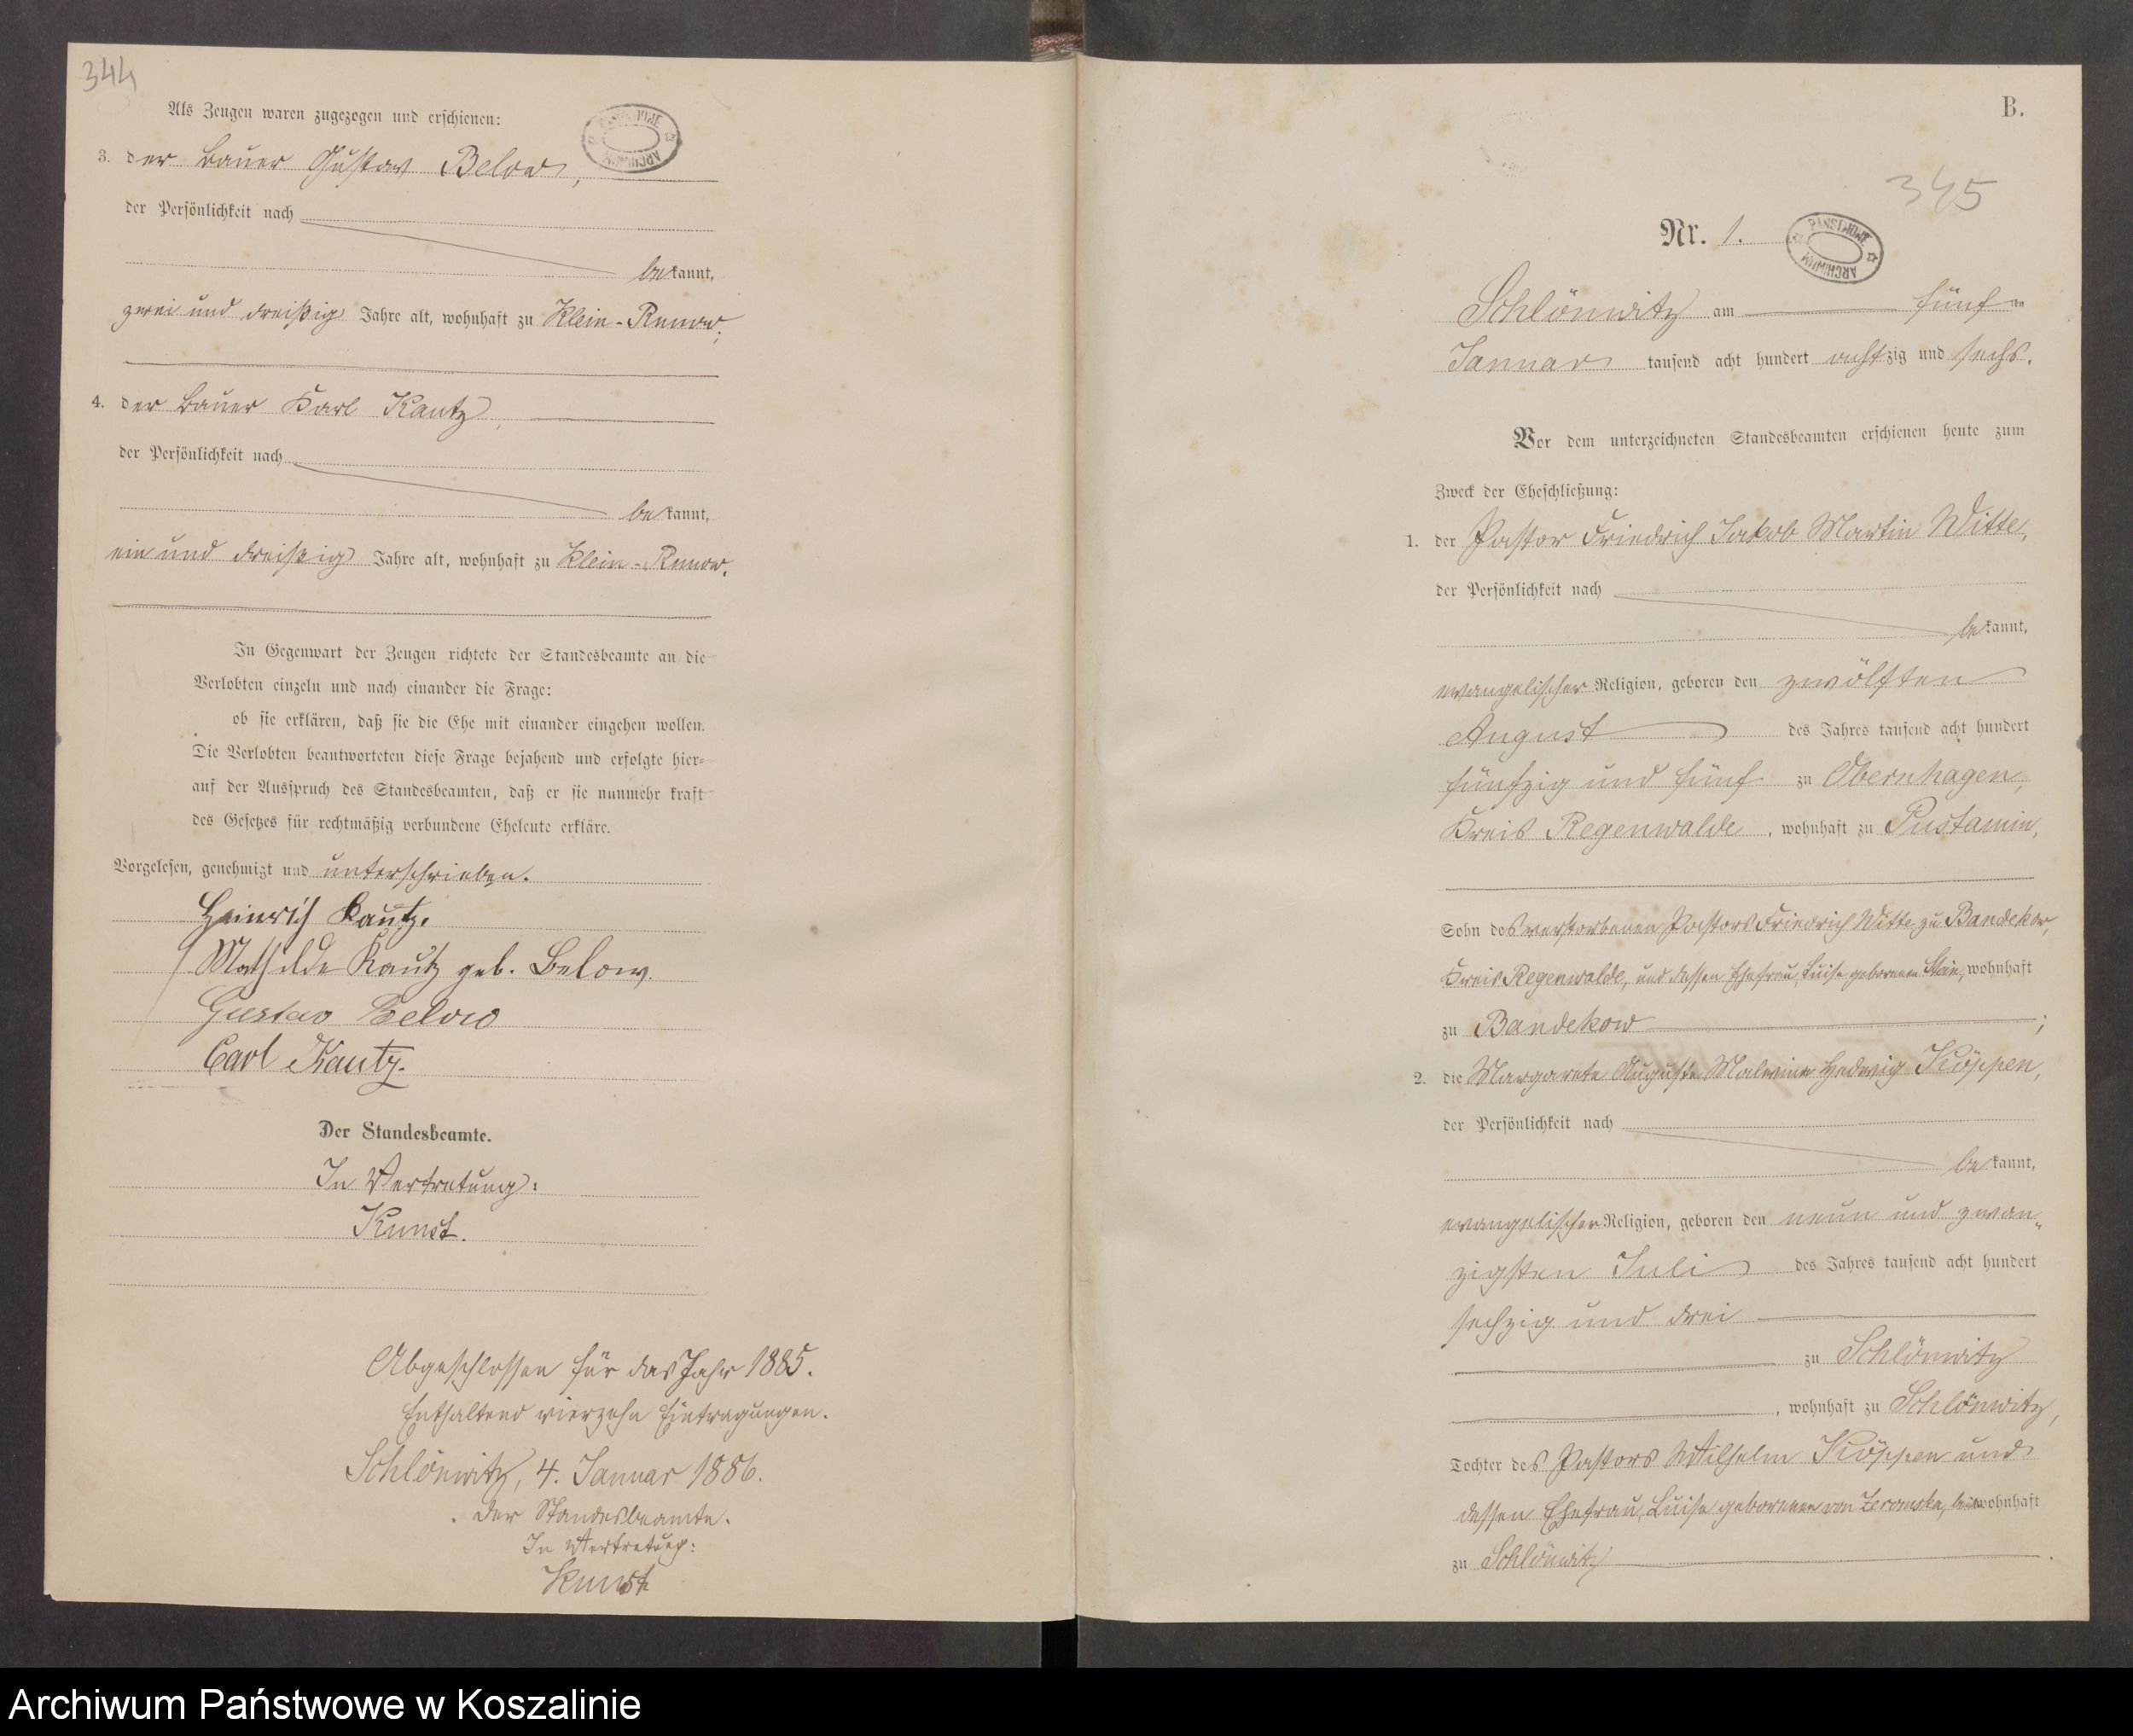 344
Als Zeugen waren zugezogen und erschienen:
3. der Bauer Gustav Below,
der Persönlichkeit nach
bekannt,
zwei und dreißig Jahre alt, wohnhaft zu Klein-Runow;
4. der Bauer Karl Kautz,
der Persönlichkeit nach
bekannt,
ein und dreißig Jahre alt, wohnhaft zu Klein-Runow.
In Gegenwart der Zeugen richtete der Standesbeamte an die
Verlobten einzeln und nach einander die Frage:
ob sie erklären, daß sie die Ehe mit einander eingehen wollen.
Die Verlobten beantworteten diese Frage bejahend und erfolgte hier-
auf der Ausspruch des Standesbeamten, daß er sie nunmehr kraft
des Gesetzes für rechtmäßig verbundene Eheleute erkläre.
Vorgelesen, genehmigt und unterschrieben.
Heinrich Kautz.
Mathilde Kautz geb. Below.
Gustav Below
Carl Kautz.
Der Standesbeamte.
In Vertretung:
Kunst.
Abgeschlossen für das Jahr 1885.
Enthaltend vierzehn Eintragungen.
Schlönwitz, 4. Januar 1886.
Der Standesbeamte.
In Vertretung:
Kunst
B.
345
Nr. 1.
PAŃSTWOWE ARCHIWUM
Schlönwitz am fünf-
Januar tausend acht hundert achtzig und sechs.
Vor dem unterzeichneten Standesbeamten erschienen heute zum
Zweck der Eheschließung:
1. der Pastor Friedrich Jakob Martin Witte,
der Persönlichkeit nach
bekannt,
evangelischer Religion, geboren den zwölften
August des Jahres tausend acht hundert
fünfzig und fünf zu Obernhagen,
Kreis Regenwalde, wohnhaft zu Pustamin,
Sohn des verstorbenen Pastors Friedrich Witte zu Bandekow,
Kreis Regenwalde, und dessen Ehefrau, Luise geborenen Stein, wohnhaft
zu Bandekow;
2. die Margarete Auguste Malwine Hedwig Köppen,
der Persönlichkeit nach
bekannt,
evangelischer Religion, geboren den neun und zwan-
zigsten Juli des Jahres tausend acht hundert
sechzig und drei
zu Schlönwitz
, wohnhaft zu Schlönwitz,
Tochter des Pastors Wilhelm Köppen und
dessen Ehefrau, Luise geborenen von wohnhaft
zu Schlönwitz.
Archiwum Państwowe w Koszalinie